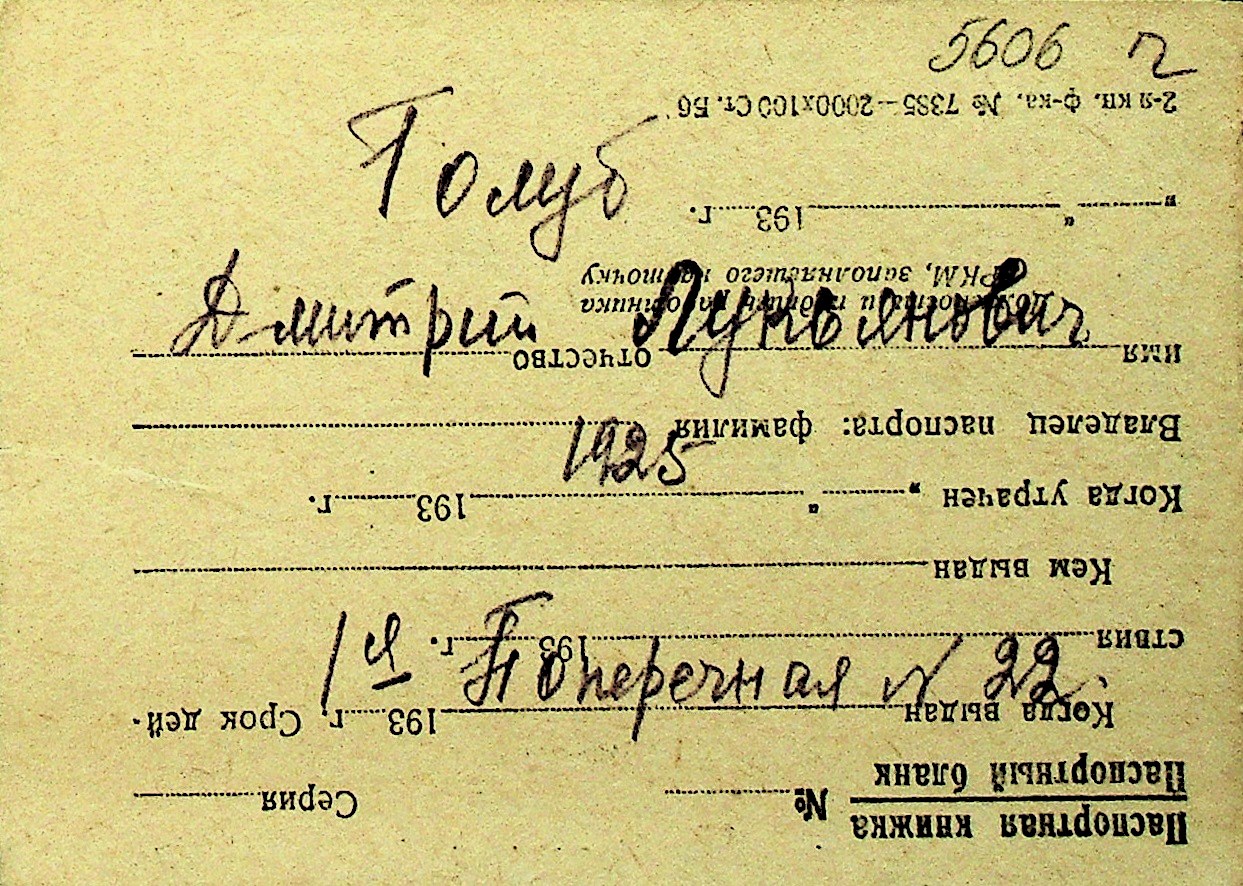 5606
Голуб
Дмитрий Лукьянович
1925
1я Поперечная N 22.
Паспортная книжка
Паспортный бланк № Серия
Когда выдан 193 г. Срок дей-
ствия 193 г.
Кем выдан
Когда утрачен „ “ 193 г.
Владелец паспорта: фамилия
имя отчество
Должность и подпись работника
РКМ, заполнявшего карточку
„ “ 193 г.
2-я кн. ф-ка. № 7385—2000х100 Ст. Б6